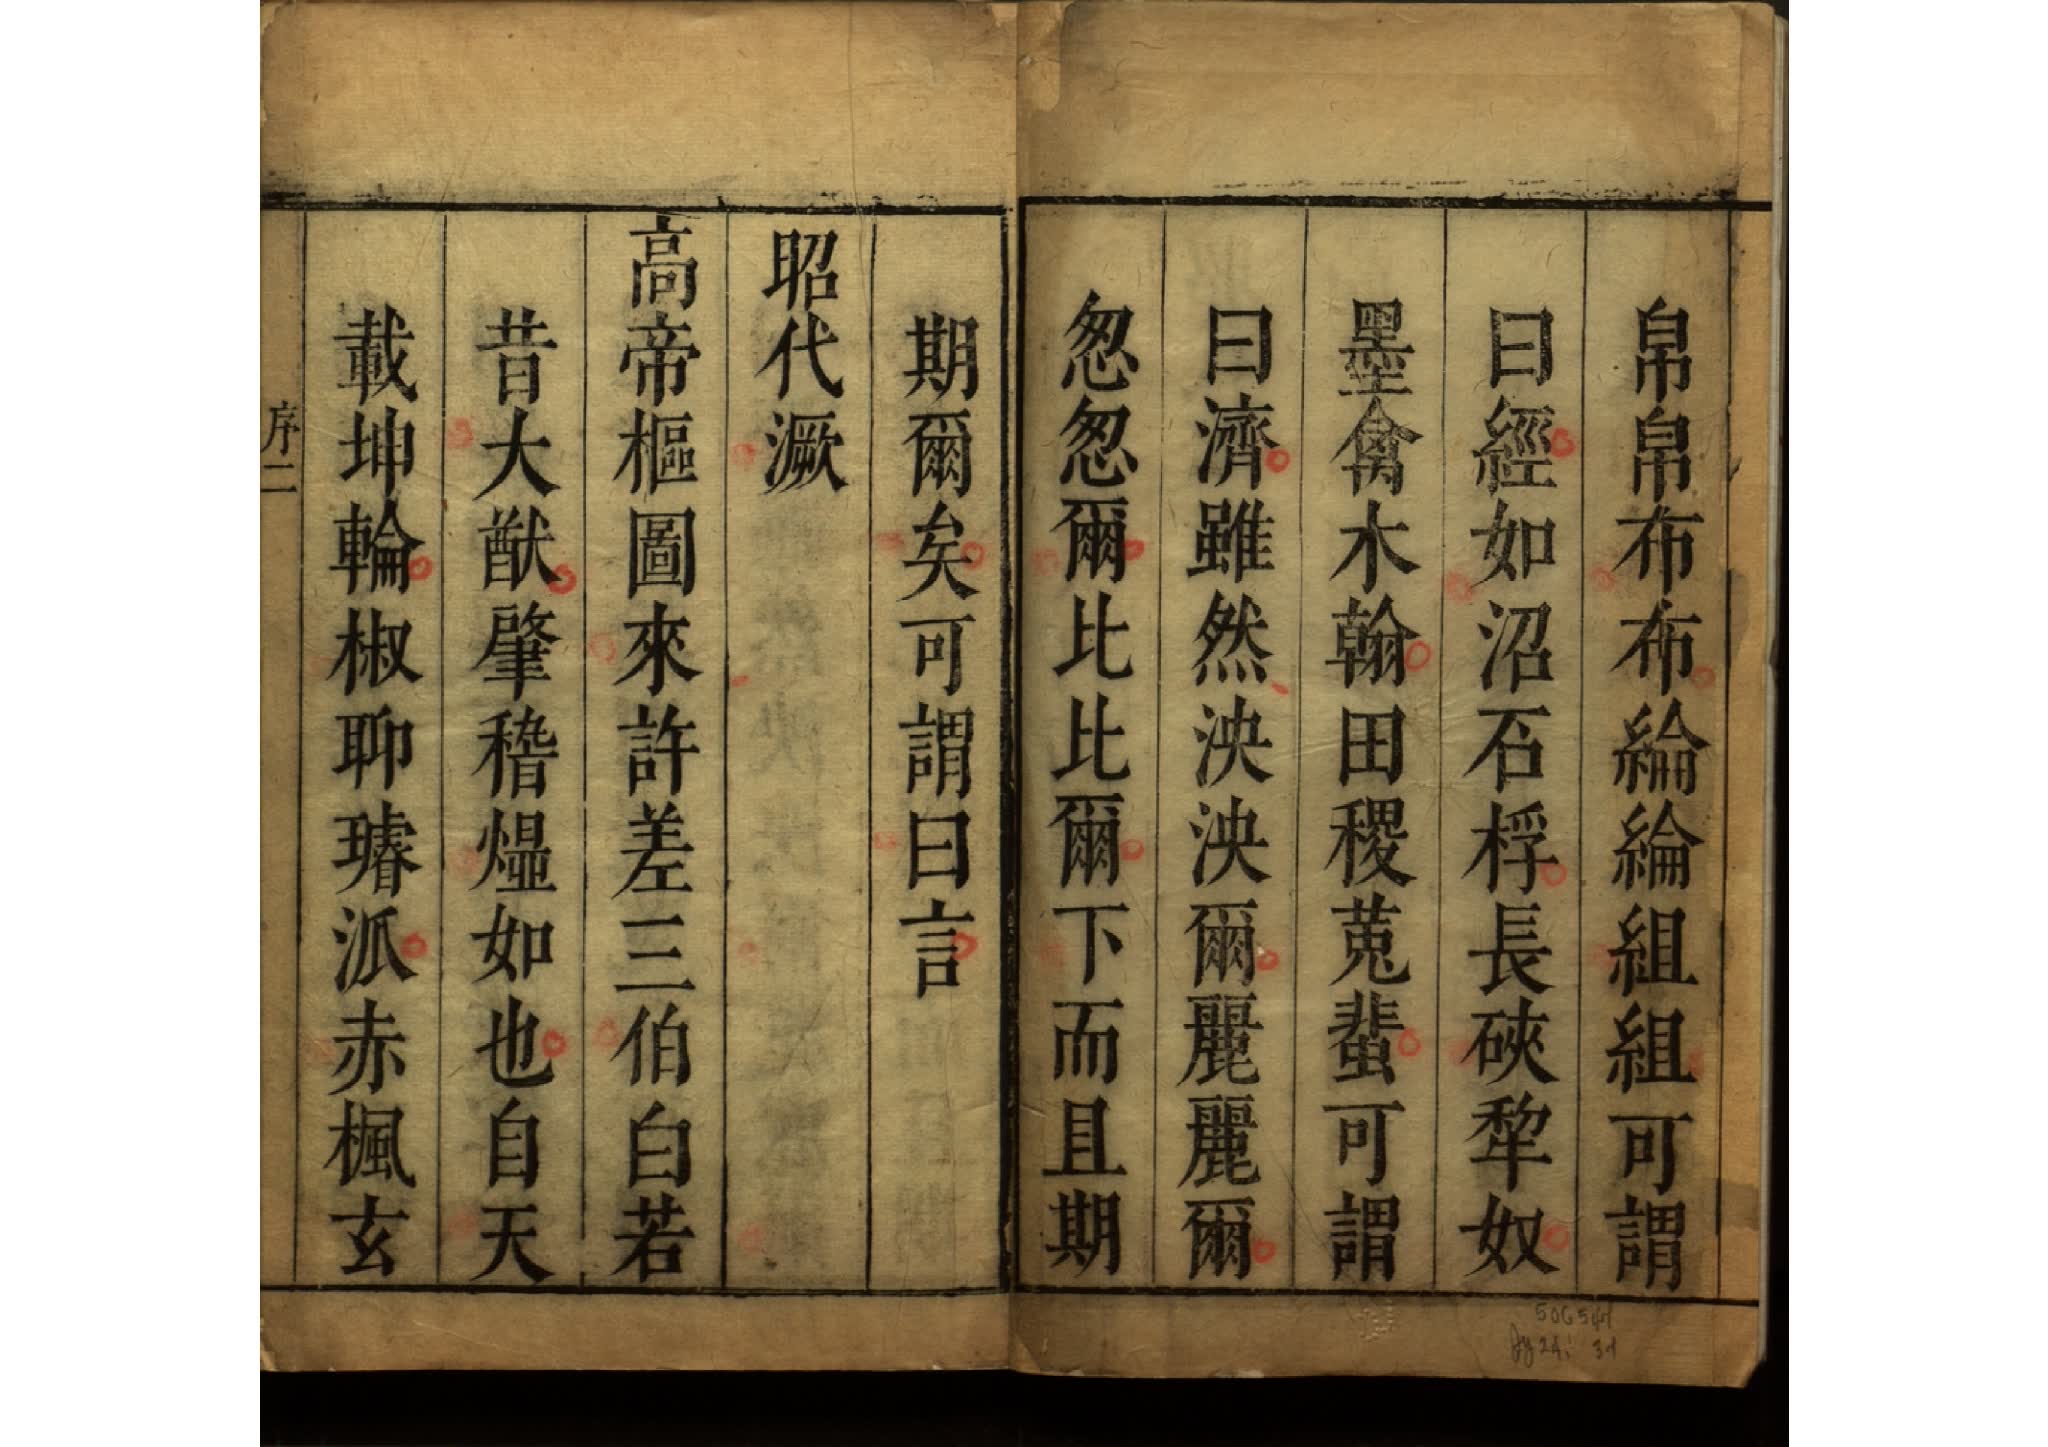 帛帛布布綸綸組組可謂
曰經如沼石桴長硤犂奴
墨禽木翰田稷菟蜚可謂
曰濟雖然泱泱爾麗麗爾
怱怱爾比比爾下而且期
期爾矣可謂曰言
昭代澱
高帝樞圖來許差三伯白若
昔大猷肈稽熅如也自天
載坤輪椒聊璿派赤楓玄
序二
50654